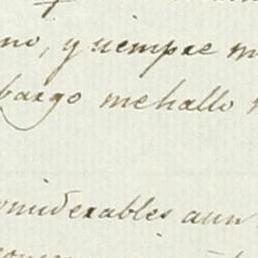 no, y siempre m
bargo me hallo
onsiderables aun